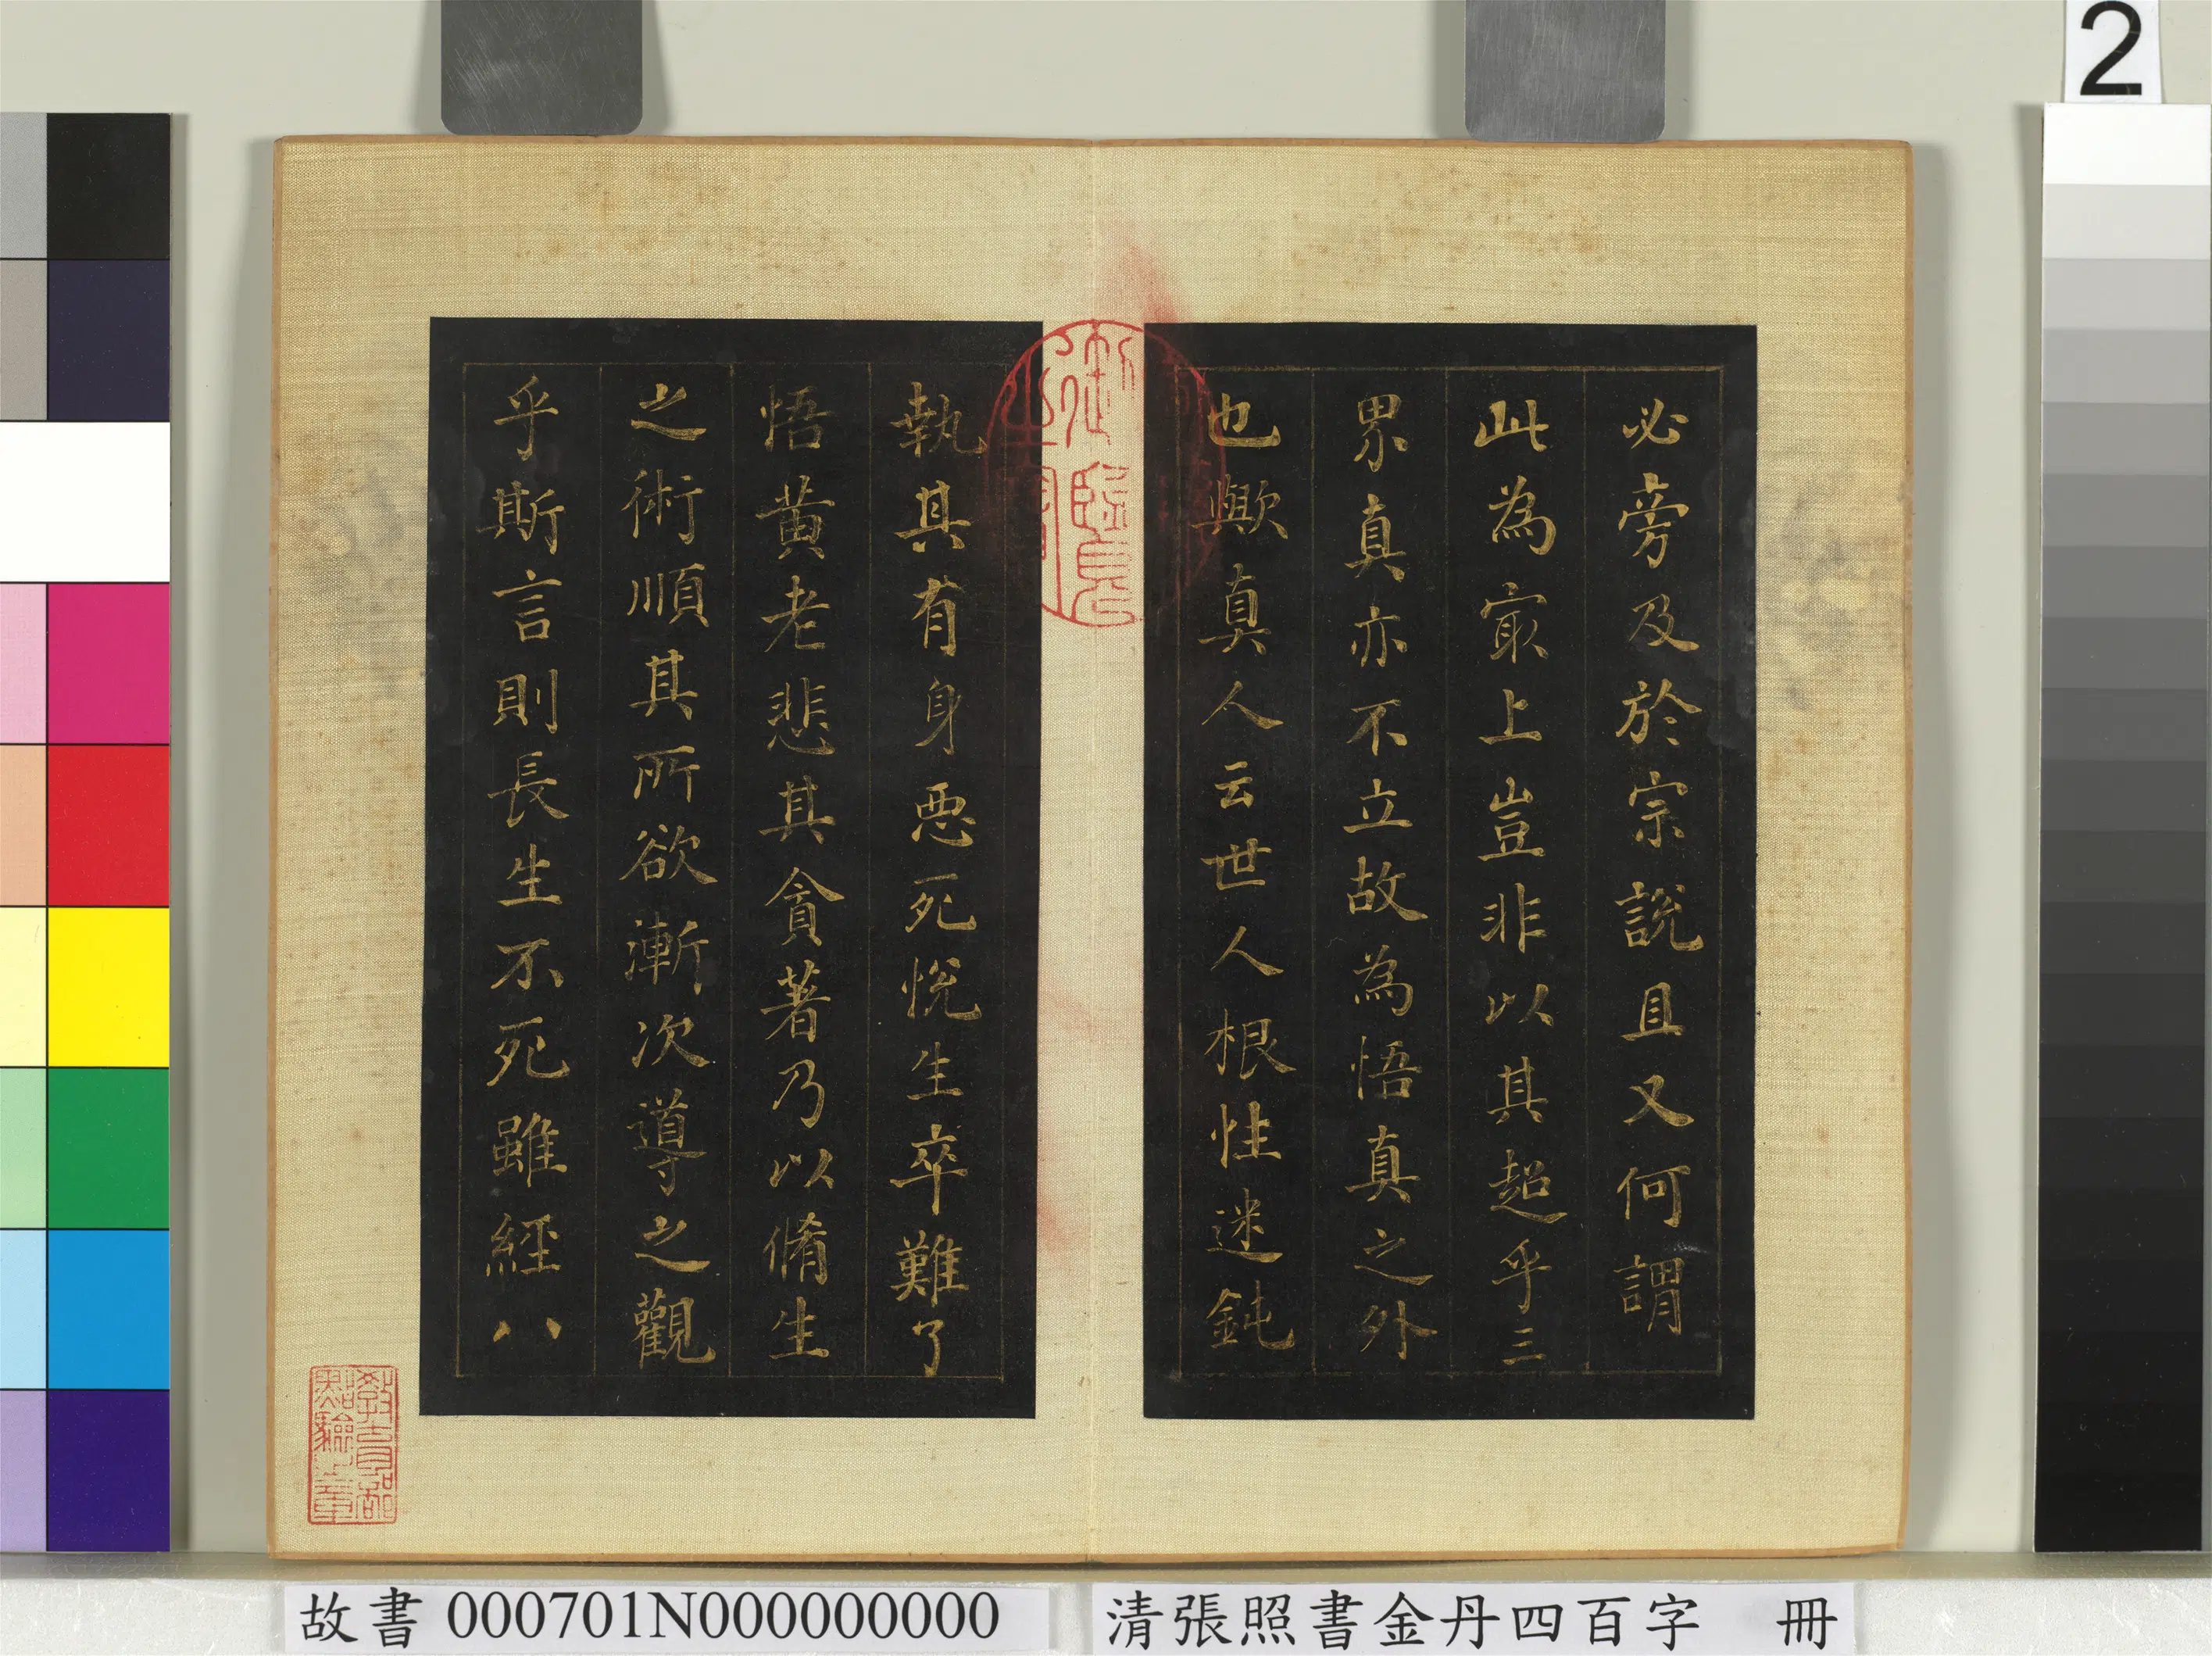 2
必旁及於宗說且又何謂
此為㝡上豈非以其超乎三
界真亦不立故為悟真之外
也歟真人云世人根性迷鈍
執其有身惡死悅生卒難了
悟黃老悲其貪著乃以脩生
之術順其所欲漸次導之觀
乎斯言則長生不死雖經八
御書房鑑藏寶
教育部點驗之章
故書 000701N000000000
清張照書金丹四百字 冊